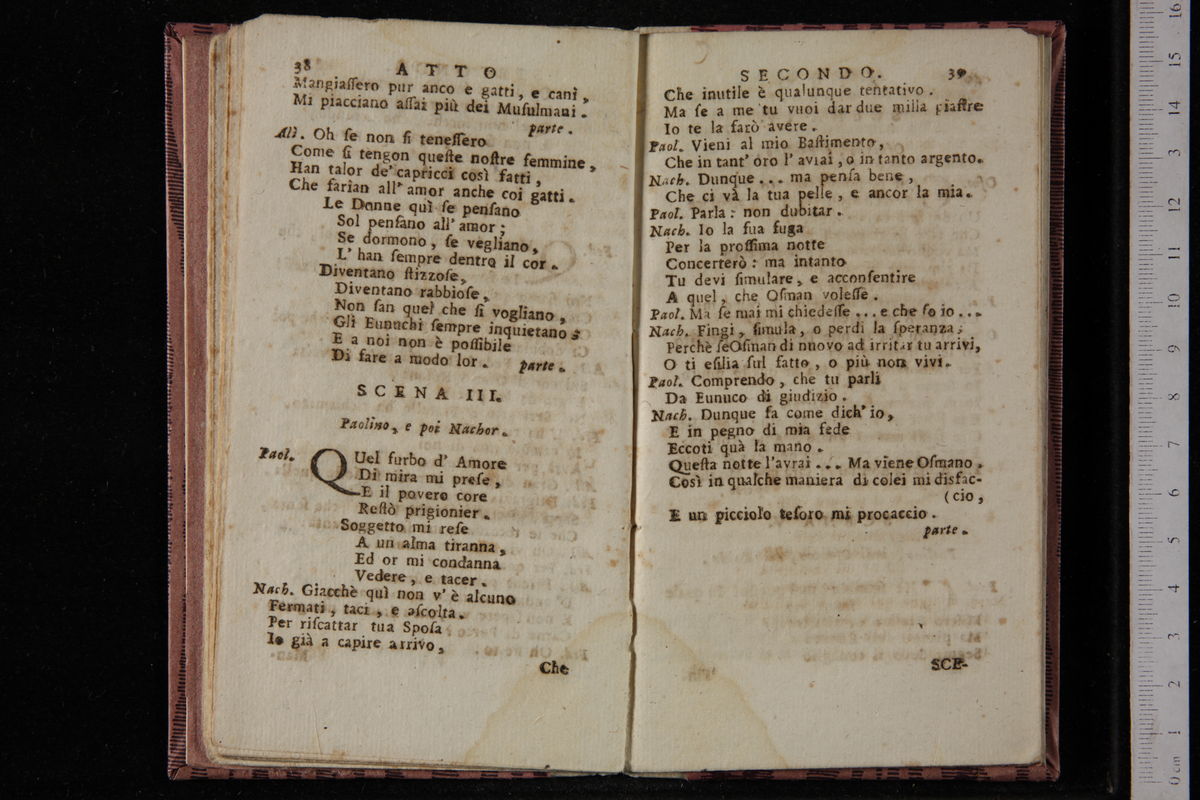 38 ATTO
Mangiaſſero pur anco e gatti, e cani,
Mi piacciano aſſai più dei Muſulmani.
parte.
Alì. Oh ſe non ſi teneſſero
Come ſi tengon queſte noſtre femmine,
Han talor de' capricci così fatti,
Che farian all' amor anche coi gatti.
Le Donne quì ſe penſano
Sol penſano all' amor;
Se dormono, ſe vegliano,
L' han ſempre dentro il cor.
Diventano ſtizzoſe,
Diventano rabbioſe,
Non ſan quel che ſi vogliano,
Gli Eunuchi ſempre inquietano;
E a noi non è poſſibile
Di fare a modo lor. parte.
SCENA III.
Paolino, e poi Nachor.
Paol. QUel furbo d' Amore
Di mira mi preſe,
E il povero core
Reſtò prigionier.
Soggetto mi reſe
A un alma tiranna,
Ed or mi condanna
Vedere, e tacer.
Nach. Giacchè quì non v' è alcuno
Fermati, taci, e aſcolta.
Per riſcattar tua Spoſa
Io già a capire arrivo,
Che
SECONDO. 39
Che inutile è qualunque tentativo.
Ma ſe a me tu vuoi dar due milla piaſtre
Io te la farò avere.
Paol. Vieni al mio Baſtimento,
Che in tant' oro l' aviai, o in tanto argento.
Nach. Dunque... ma penſa bene,
Che ci và la tua pelle, e ancor la mia.
Paol. Parla: non dubitar.
Nach. Io la ſua fuga
Per la proſſima notte
Concerterò: ma intanto
Tu devi ſimulare, e acconſentire
A quel, che Oſman voleſſe.
Paol. Ma ſe mai mi chiedeſſe... e che ſo io...
Nach. Fingi, ſimula, o perdi la ſperanza;
Perchè ſeOſman di nuovo ad irritar tu arrivi,
O ti eſilia ſul fatto, o più non vivi.
Paol. Comprendo, che tu parli
Da Eunuco di giudizio.
Nach. Dunque fa come dich' io,
E in pegno di mia fede
Eccoti quà la mano.
Queſta notte l'avrai... Ma viene Oſmano.
Così in qualche maniera di colei mi disfac-
(cio,
E un picciolo teſoro mi procaccio.
parte.
SCE-